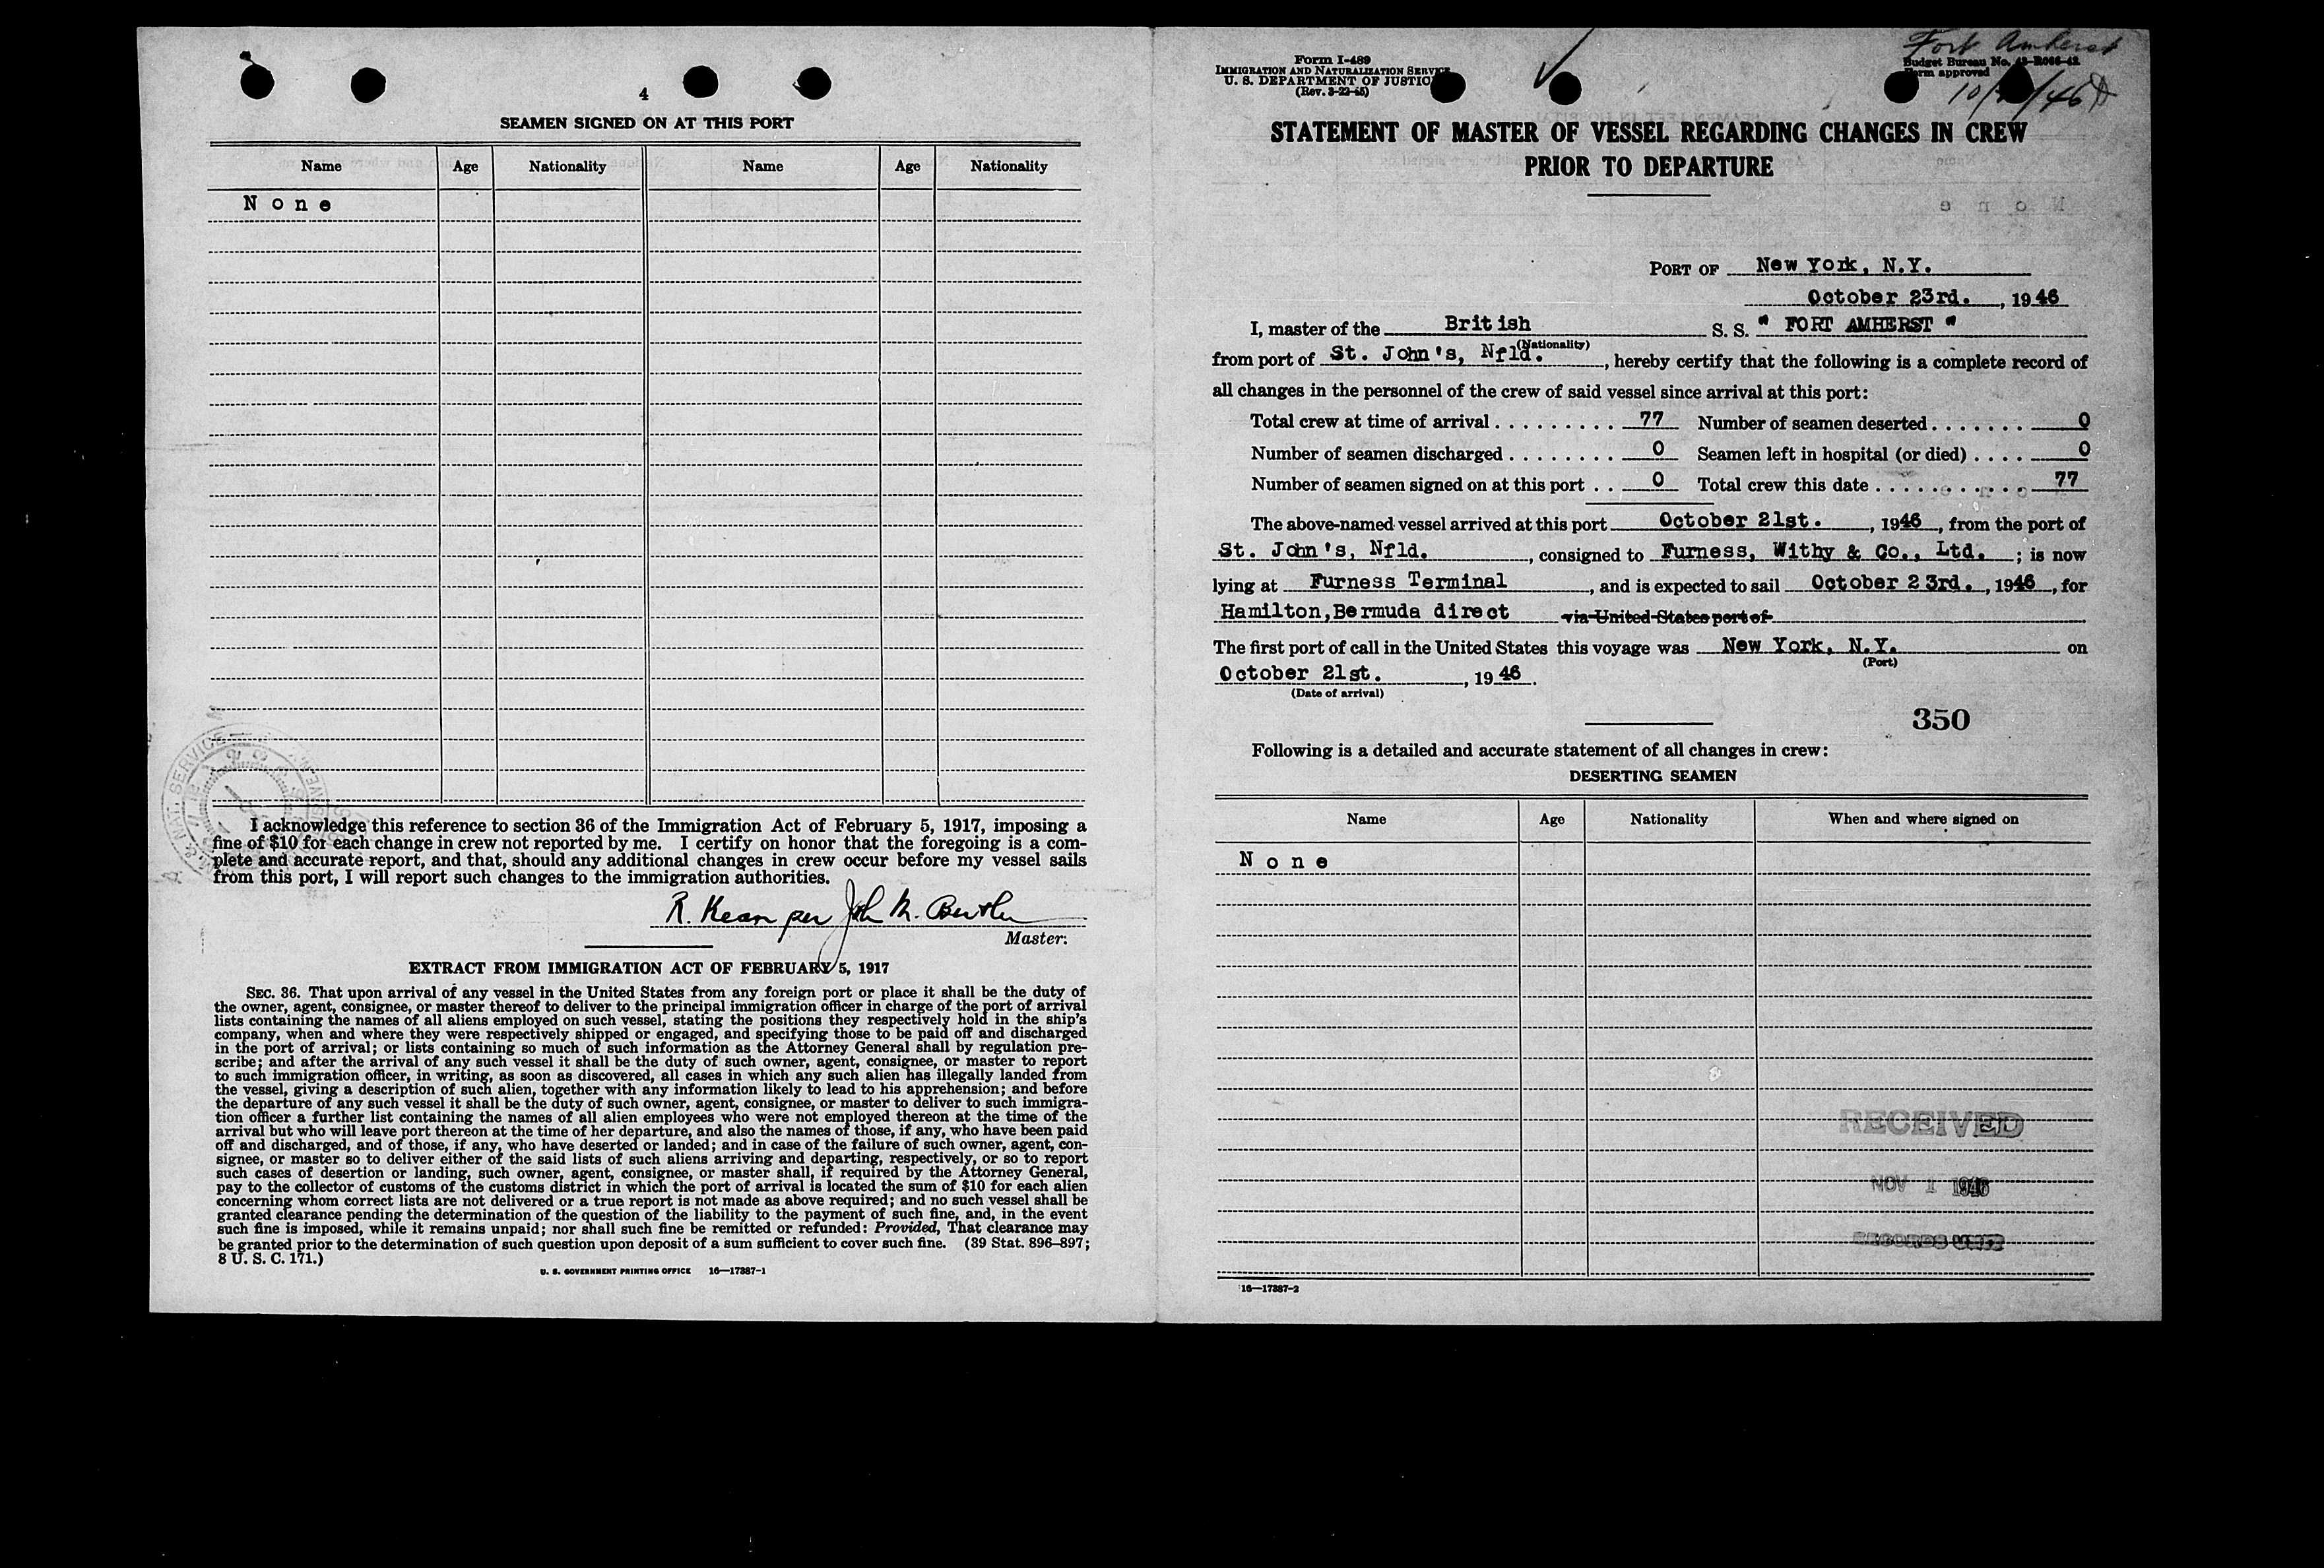 4
SEAMEN SIGNED ON AT THIS PORT
Name Age Nationality Name Age Nationality
None
I acknowledge this reference to section 36 of the Immigration Act of February 5, 1917, imposing a
fine of $10 for each change in crew not reported by me. I certify on honor that the foregoing is a com-
plete and accurate report, and that, should any additional changes in crew occur before my vessel sails
from this port, I will report such changes to the immigration authorities.
R. Kean per John M.
Master.
EXTRACT FROM IMMIGRATION ACT OF FEBRUARY 5, 1917
SEC. 36. That upon arrival of any vessel in the United States from any foreign port or place it shall be the duty of
the owner, agent, consignee, or master thereof to deliver to the principal immigration officer in charge of the port of arrival
lists containing the names of all aliens employed on such vessel, stating the positions they respectively hold in the ship's
company, when and where they were respectively shipped or engaged, and specifying those to be paid off and discharged
in the port of arrival; or lists containing so much of such information as the Attorney General shall by regulation pre-
scribe; and after the arrival of any such vessel it shall be the duty of such owner, agent, consignee, or master to report
to such immigration officer, in writing, as soon as discovered, all cases in which any such alien has illegally landed from
the vessel, giving a description of such alien, together with any information likely to lead to his apprehension; and before
the departure of any such vessel it shall be the duty of such owner, agent, consignee, or master to deliver to such immigra-
tion officer a further list containing the names of all alien employees who were not employed thereon at the time of the
arrival but who will leave port thereon at the time of her departure, and also the names of those, if any, who have been paid
off and discharged, and of those, if any, who have deserted or landed; and in case of the failure of such owner, agent, con-
signee, or master so to deliver either of the said lists of such aliens arriving and departing, respectively, or so to report
such cases of desertion or landing, such owner, agent, consignee, or master shall, if required by the Attorney General,
pay to the collector of customs of the customs district in which the port of arrival is located the sum of $10 for each alien
concerning whom correct lists are not delivered or a true report is not made as above required; and no such vessel shall be
granted clearance pending the determination of the question of the liability to the payment of such fine, and, in the event
such fine is imposed, while it remains unpaid; nor shall such fine be remitted or refunded: Provided, That clearance may
be granted prior to the determination of such question upon deposit of a sum sufficient to cover such fine. (39 Stat. 896-897;
8 U. S. C. 171.)
U. S. GOVERNMENT PRINTING OFFICE 16—17387-1
Form I-489
IMMIGRATION AND NATURALIZATION SERVICE
U. S. DEPARTMENT OF JUSTICE
(Rev. 3-22-45)
Fort Amherst
Budget Bureau No.
Form approved
STATEMENT OF MASTER OF VESSEL REGARDING CHANGES IN CREW
PRIOR TO DEPARTURE
PORT OF New York, N.Y.
October 23rd., 1946
I, master of the British S. S. " FORT AMHERST "
(Nationality)
from port of St. John's, Nfld., hereby certify that the following is a complete record of
all changes in the personnel of the crew of said vessel since arrival at this port:
Total crew at time of arrival . . . . . . . . . 77 Number of seamen deserted . . . . . . . 0
Number of seamen discharged . . . . . . . . 0 Seamen left in hospital (or died) . . . . 0
Number of seamen signed on at this port . . 0 Total crew this date . . . . . . . . . . . 77
The above-named vessel arrived at this port October 21st., 1946, from the port of
St. John's, Nfld., consigned to Furness, Withy & Co., Ltd. ; is now
lying at Furness Terminal, and is expected to sail October 23rd., 1946, for
Hamilton,Bermuda direct via United States port of
The first port of call in the United States this voyage was New York, N.Y. on
(Port)
October 21st., 1946.
(Date of arrival)
350
Following is a detailed and accurate statement of all changes in crew:
DESERTING SEAMEN
Name Age Nationality When and where signed on
None
RECEIVED
NOV 1 1946
RECORDS UNIT
16—17387-2